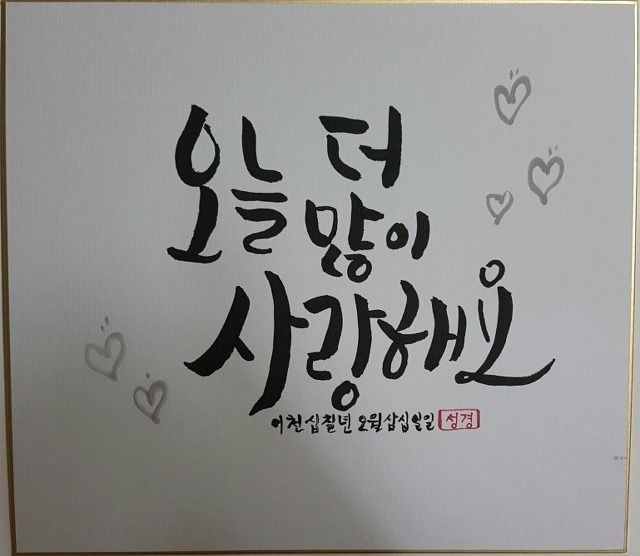 오늘 더
많이
사랑해요
이천십칠년 오월삼십일일 성경